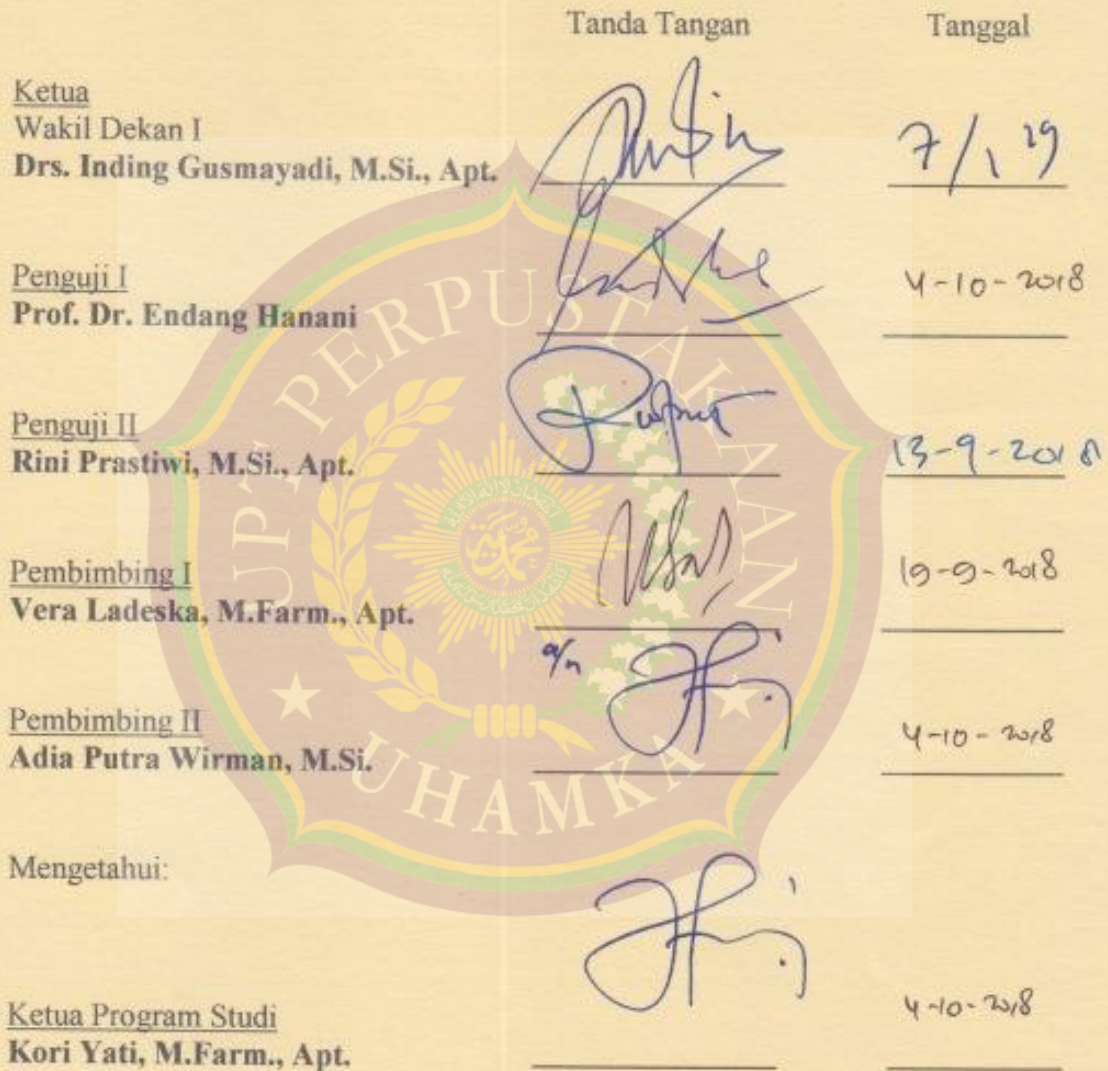 Tanda Tangan Tanggal
Ketua
Wakil Dekan I
Drs. Inding Gusmayadi, M.Si., Apt. 7/1 19
Penguji I
Prof. Dr. Endang Hanani 4-10-2018
Penguji II
Rini Prastiwi, M.Si., Apt. 13-9-2018
Pembimbing I
Vera Ladeska, M.Farm., Apt. 19-9-2018
a/n
Pembimbing II
Adia Putra Wirman, M.Si. 4-10-2018
Mengetahui:
Ketua Program Studi 4-10-2018
Kori Yati, M.Farm., Apt.
UPT PERPUSTAKAAN
UHAMKA